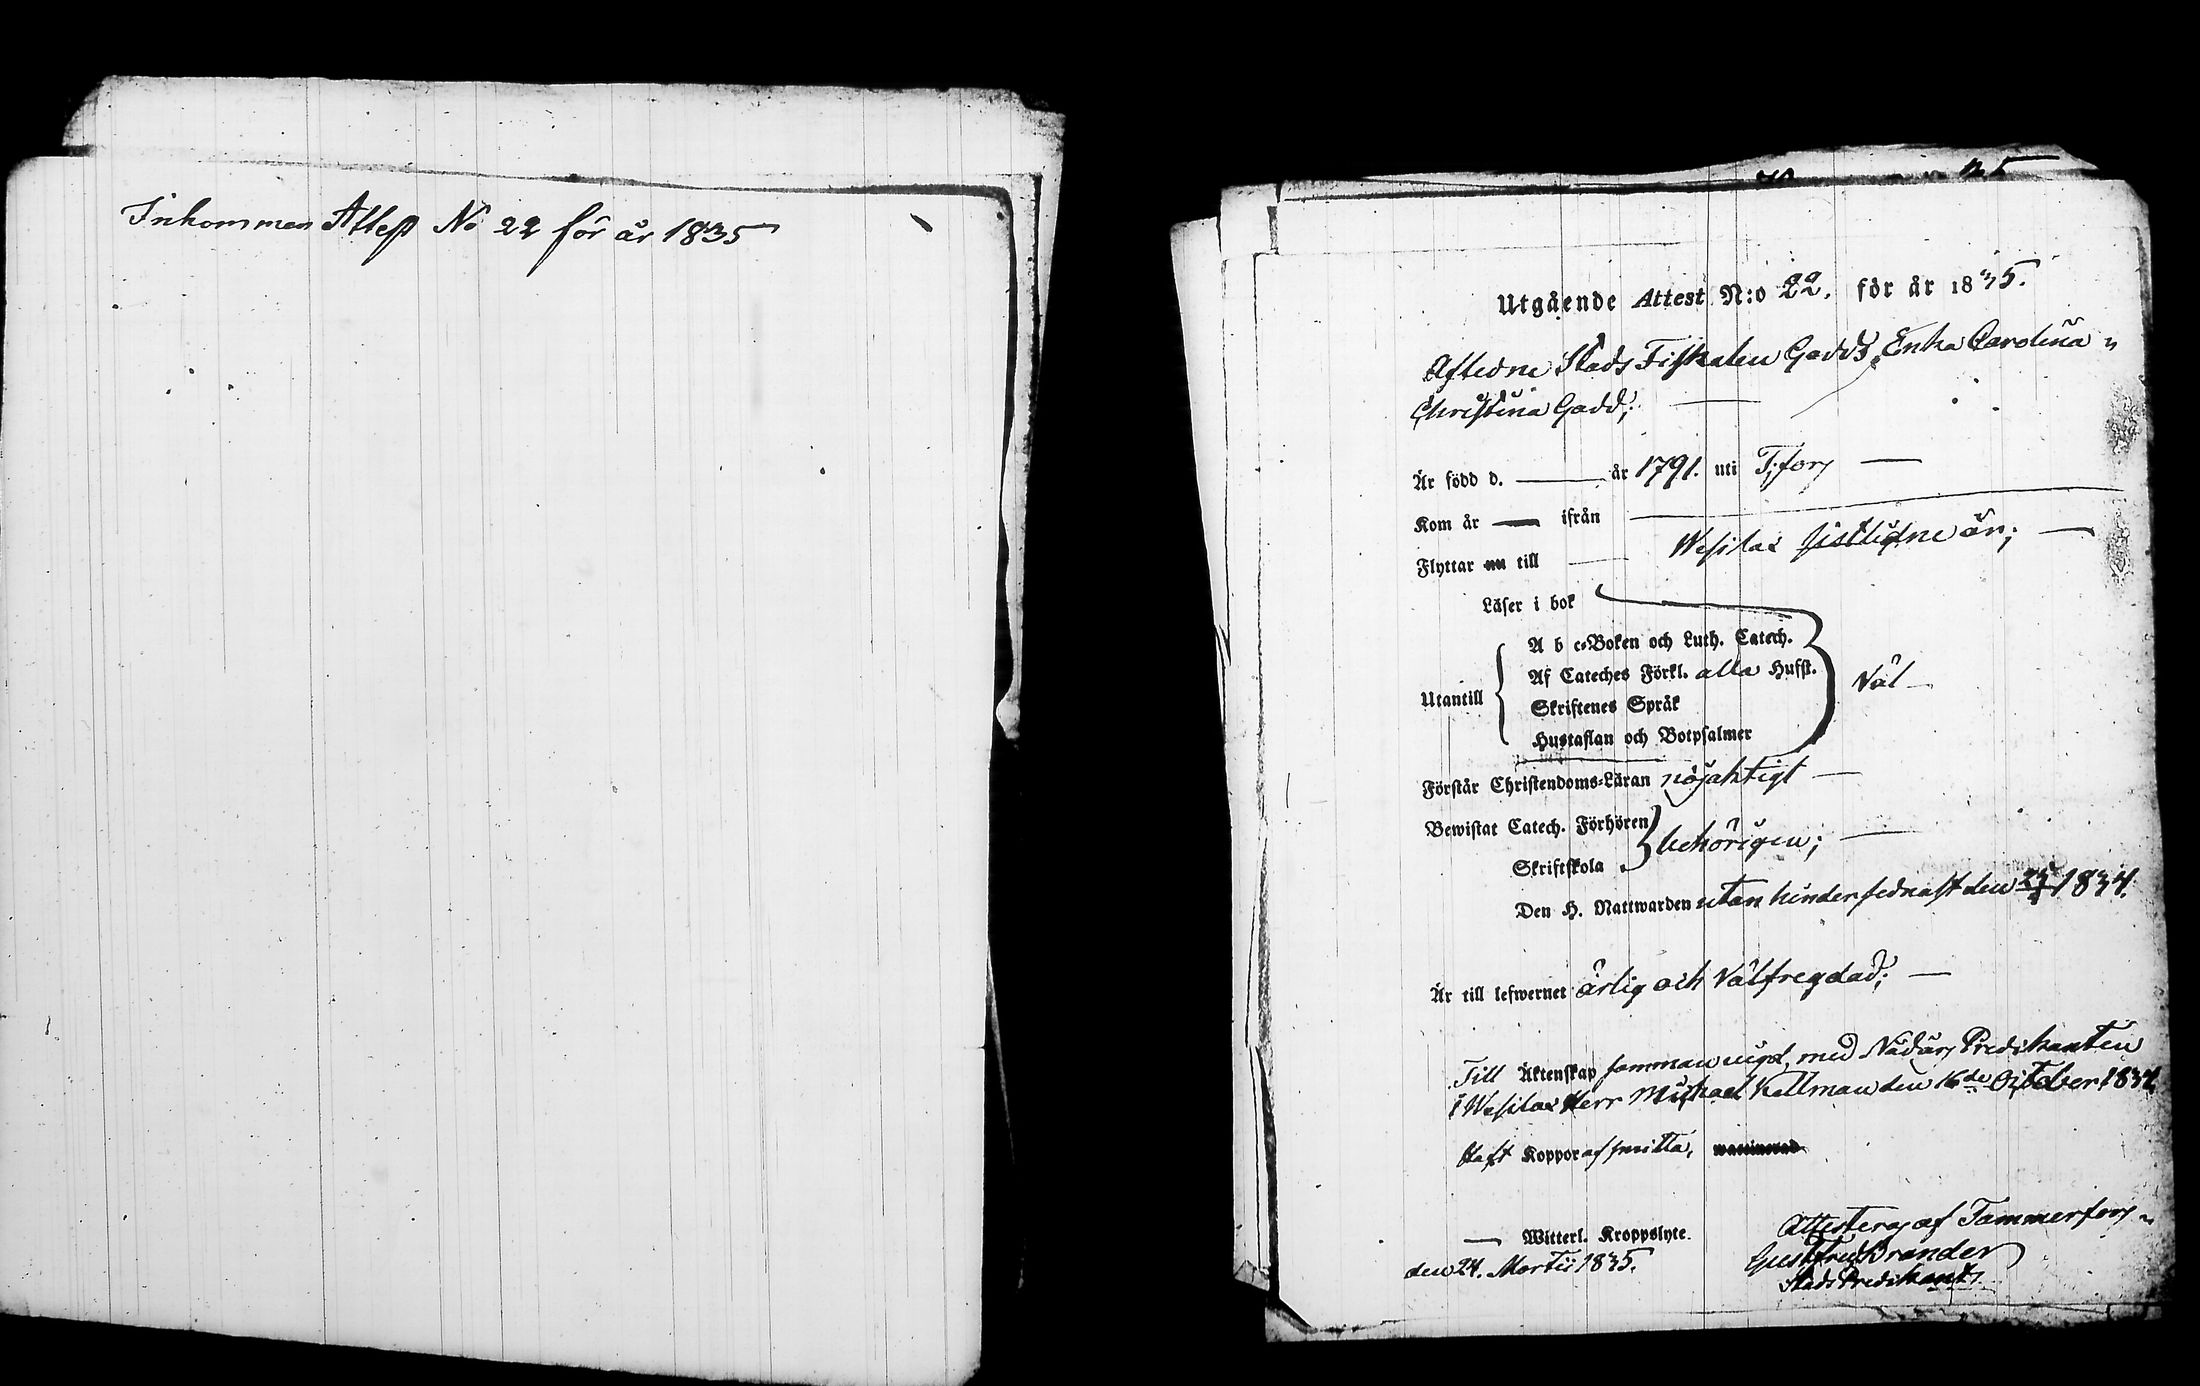 Inkommen Attest No 22 för år 1835
Utgående Attest N:o 22. för år 1835.
Aflidne Stads Fiskalen Gadds Enka Carolina
Christina Gadd;
Är född d. — år 1791. uti T;fors —
Kom år — ifrån —
Flyttar nu till — Wesilax sistlidne år; —
Läser i bok
Utantill
A b c-Boken och Luth. Catech.
Af Cateches Förkl. alla Hufst.
Skriftenes Språk
Hustaflan och Botpsalmer
Väl —
Förstår Christendoms-Läran nöjaktigt —
Bewistat Catech. Förhören
Skriftskola
behörigen; —
Den H. Nattwarden utan hinder sednast den 1834.
Är till lefwernet ärlig och Välfregdad; —
Till Äktenskap samman vigd, med Nådårs Predikanten
i Wesilax Herr Michael Kellman den 16de October 1834
Haft Koppor af smitta,
— Witterl. Kroppslyte.
Attesteras af Tammerfors
den 24. Martii 1835.
Brander
Stads Predikant